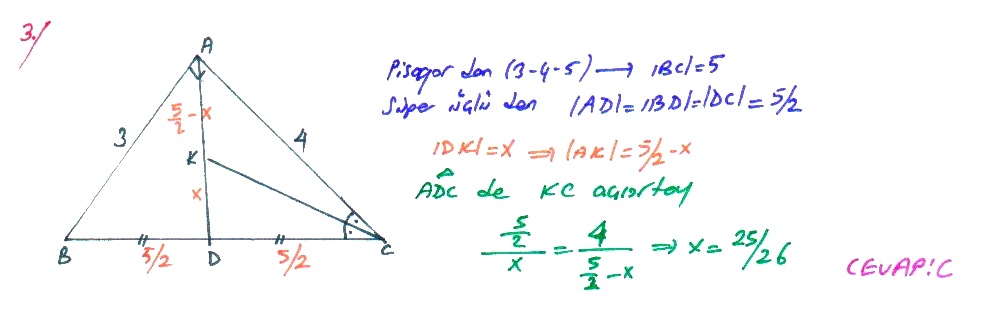 3./
A
5/2 - x
3
4
K
x
B
5/2
D
5/2
C
Pisagor dan (3-4-5) → |BC|=5
Süper üçlü den |AD|=|BD|=|DC|=5/2
|DK|=x ⇒ |AK|=5/2-x
ADC de KC açıortay
5/2 / x = 4 / 5/2 - x ⇒ x = 25/26
CEVAP:C